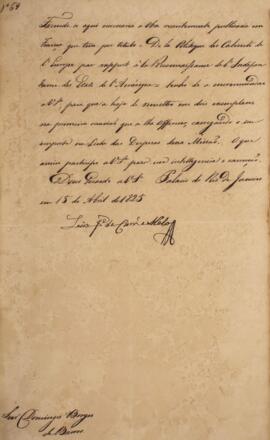 Nº 64
Fazendo-se aqui necessaria a Obra recentemente publicada em
França que tem por titulo = De la Politique des Cabinets de
l'Europe par rapport à la Reconnaissance de l'Indepen
dance des Etats de l'Amérique = tenho de a recommendar
a V.S.ª para que a haja de remetter em dois exemplares
na primeira occasião que se lhe offerecer, carregando o seu
importe na Lista das Despezas dessa Missão. O que
assim participo a V.S.ª para sua intelligencia e execução.
Deos Guarde a V.S.ª Palacio do Rio de Janeiro
em 15 de Abril de 1825
Luiz Jº de Carv.º e Mello
Snr. Domingos Borges
de Barros